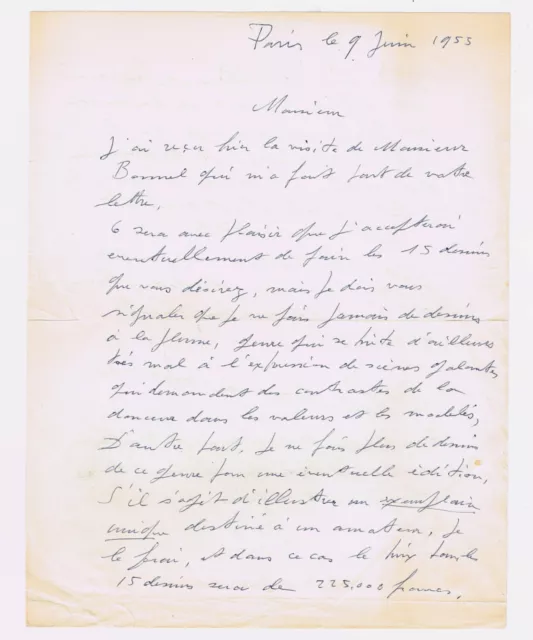 Paris le 9 Juin 1955
Monsieur
J'ai reçu hier la visite de Monsieur
Bonnel qui m'a fait part de votre
lettre,
ce sera avec plaisir que j'accepterai
éventuellement de faire les 15 dessins
que vous désirez, mais je dois vous
signaler que je ne fais jamais de dessins
à la plume, genre qui se prête d'ailleurs
très mal à l'expression de scènes galantes
qui demandent des contrastes de la
douceur dans les valeurs et les modelés,
D'autre part, je ne fais plus de dessins
de ce genre pour une éventuelle édition,
S'il s'agit d'illustrer un exemplaire
unique destiné à un amateur, je
le ferai, et dans ce cas le prix pour les
15 dessins sera de 225,000 francs,